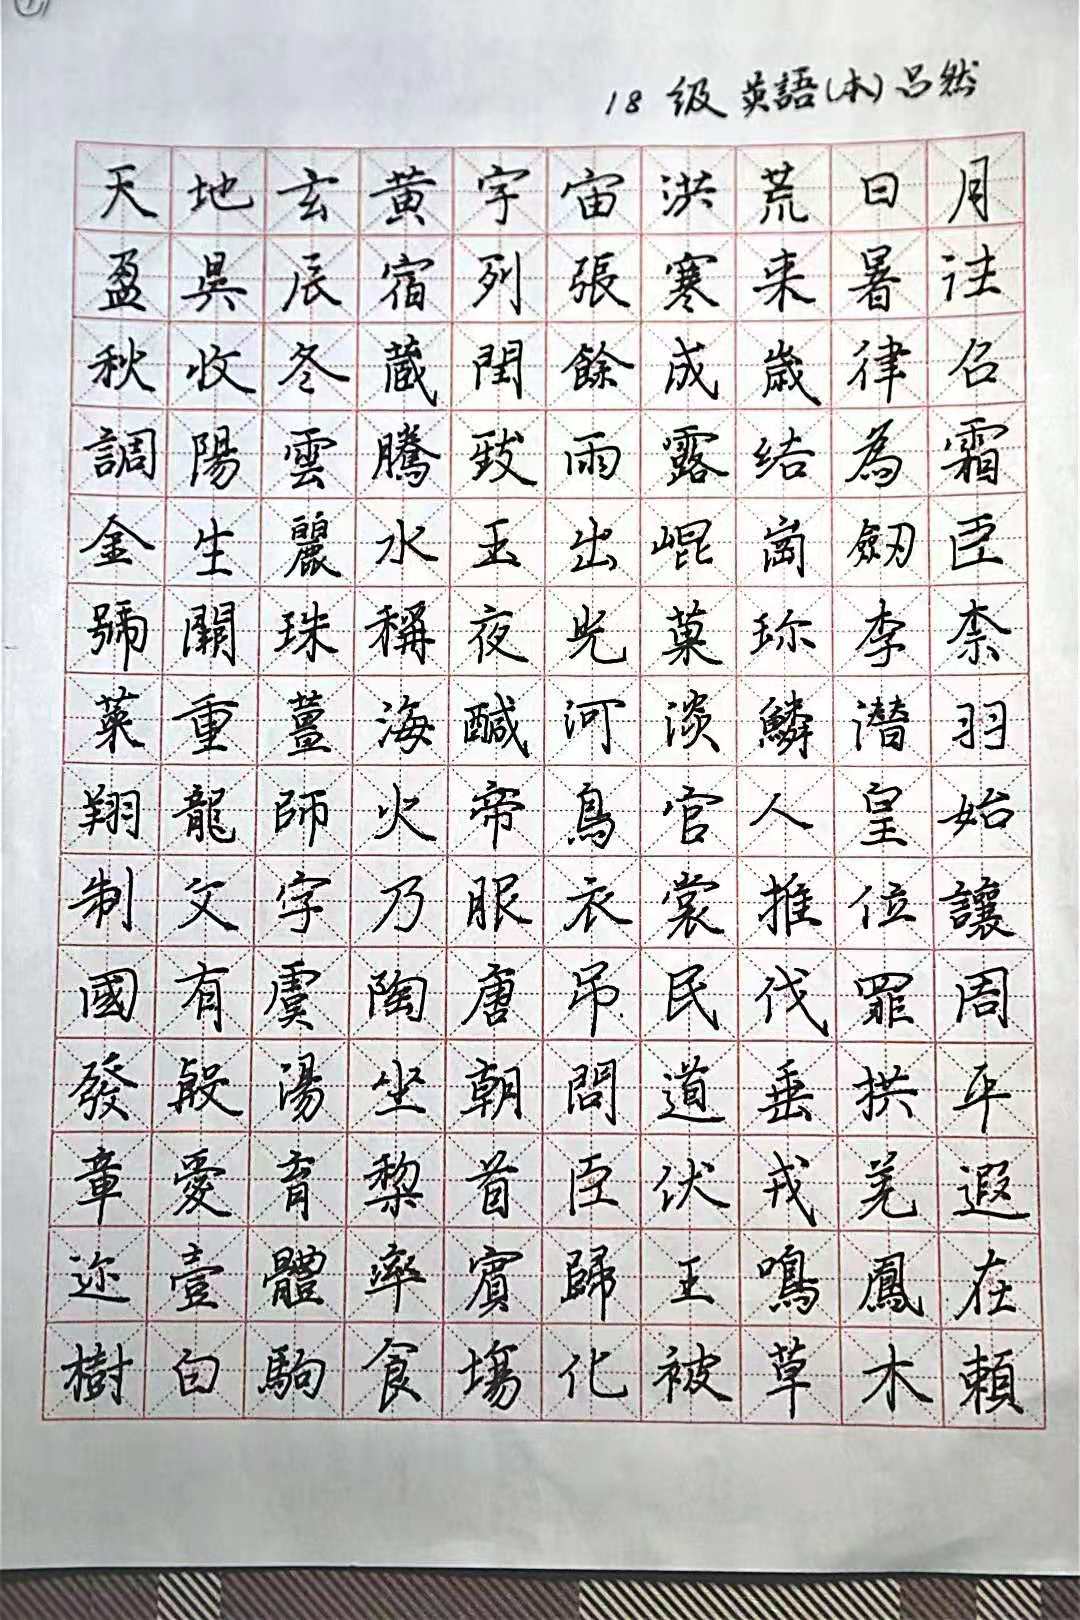 18 级 英語(本) 吕然
天地玄黄宇宙洪荒日月
盈昃辰宿列張寒来暑往
秋收冬蔵閏餘成歲律召
調陽雲騰致雨露结為霜
金生麗水玉出崐崗劔巨
號闕珠稱夜光菓珍李柰
菜重薑海醎河淡鱗潛羽
翔龍師火帝鳥官人皇始
制文字乃服衣裳推位讓
國有虞陶唐吊民伐罪周
發殷湯坐朝問道垂拱平
章愛育黎首臣伏戎羌遐
迩壹體率賓歸王鳴鳳在
樹白駒食場化被草木賴